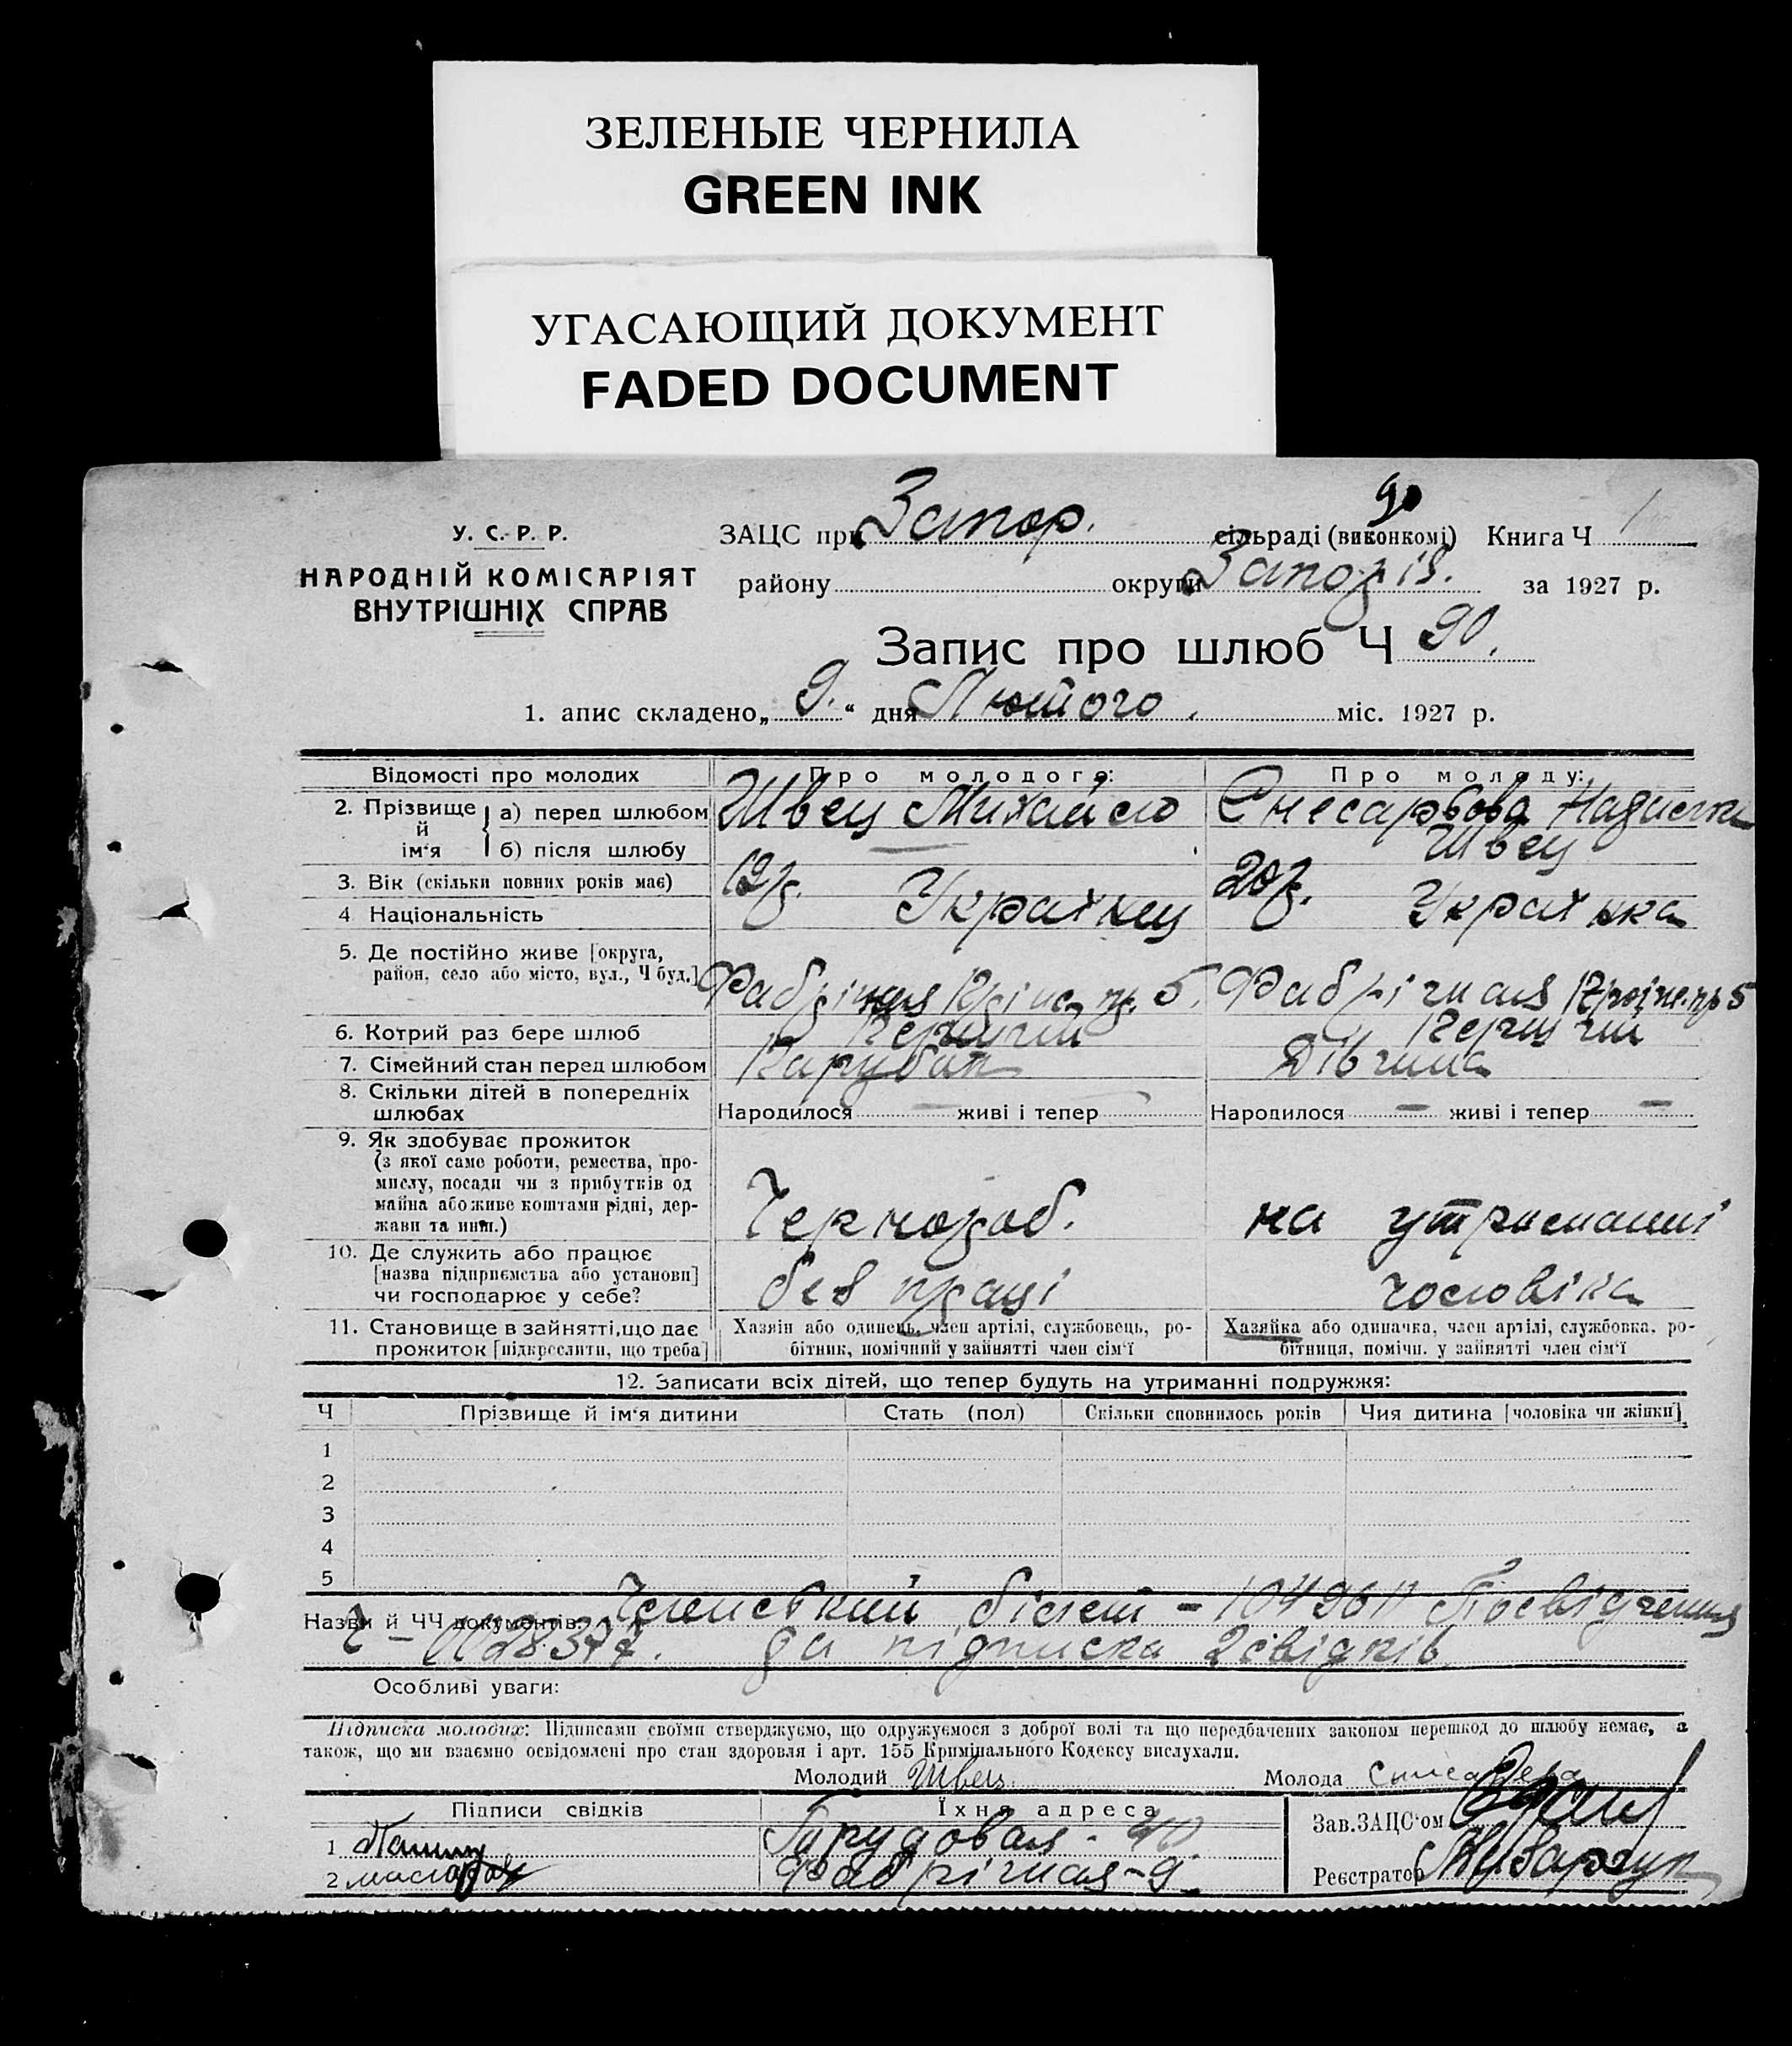 ЗЕЛЕНЫЕ ЧЕРНИЛА
GREEN INK
УГАСАЮЩИЙ ДОКУМЕНТ
FADED DOCUMENT
У. С. Р. Р.
НАРОДНІЙ КОМІСАРІЯТ
ВНУТРІШНІХ СПРАВ
90
ЗАЦС при Запор. сільраді (виконкомі) Книга Ч 1
району округи Запоріз. за 1927 р.
Запис про шлюб Ч 90.
1. апис складено „ 9. “ дня Лютого. міс. 1927 р.
Відомості про молодих Про молодого: Про молоду:
2. Прізвище й ім'я а) перед шлюбом Швец Михайло Снесарьова Надежда
б) після шлюбу — Швец
3. Вік (скільки повних років має) 19р. 20р.
4 Національність Українец Українка
5. Де постійно живе [округа,
район, село або місто, вул., Ч буд.] Фабрічная 5. Фабрічная 5
6. Котрий раз бере шлюб Перший Перший
7. Сімейний стан перед шлюбом Парубок Дівчина
8. Скільки дітей в попередніх
шлюбах Народилося — живі і тепер — Народилося — живі і тепер —
9. Як здобуває прожиток
(з якої саме роботи, ремества, про-
мислу, посади чи з прибутків од
майна або живе коштами рідні, дер-
жави та инш.) Чернороб. на утриманні
10. Де служить або працює
[назва підприємства або установи]
чи господарює у себе? без праці чоловіка
11. Становище в зайнятті, що дає Хазяїн або одинець, член артілі, службовець, ро- Хазяйка або одиначка, член артілі, службовка, ро-
прожиток [підкреслити, що треба] бітник, помічний у зайнятті член сім'ї бітниця, помічн. у зайнятті член сім'ї
12. Записати всіх дітей, що тепер будуть на утриманні подружжя:
Ч Прізвище й ім'я дитини Стать (пол) Скільки сповнилось років Чия дитина [чоловіка чи жінки]
1
2
3
4
5
Назви й ЧЧ документів: Членський білет - Посвідчення
да підписка 2 свідків
Особливі уваги:
Підписка молодих: Підписами своїми стверджуємо, що одружуємося з доброї волі та що передбачених законом перешкод до шлюбу немає, а
також, що ми взаємно освідомлені про стан здоровля і арт. 155 Кримінального Кодексу вислухали.
Молодий Швец Молода
Підписи свідків Їхня адреса Зав. ЗАЦС'ом
1 Трудовая - 40
2 Фабрічная - 9 Реєстратор